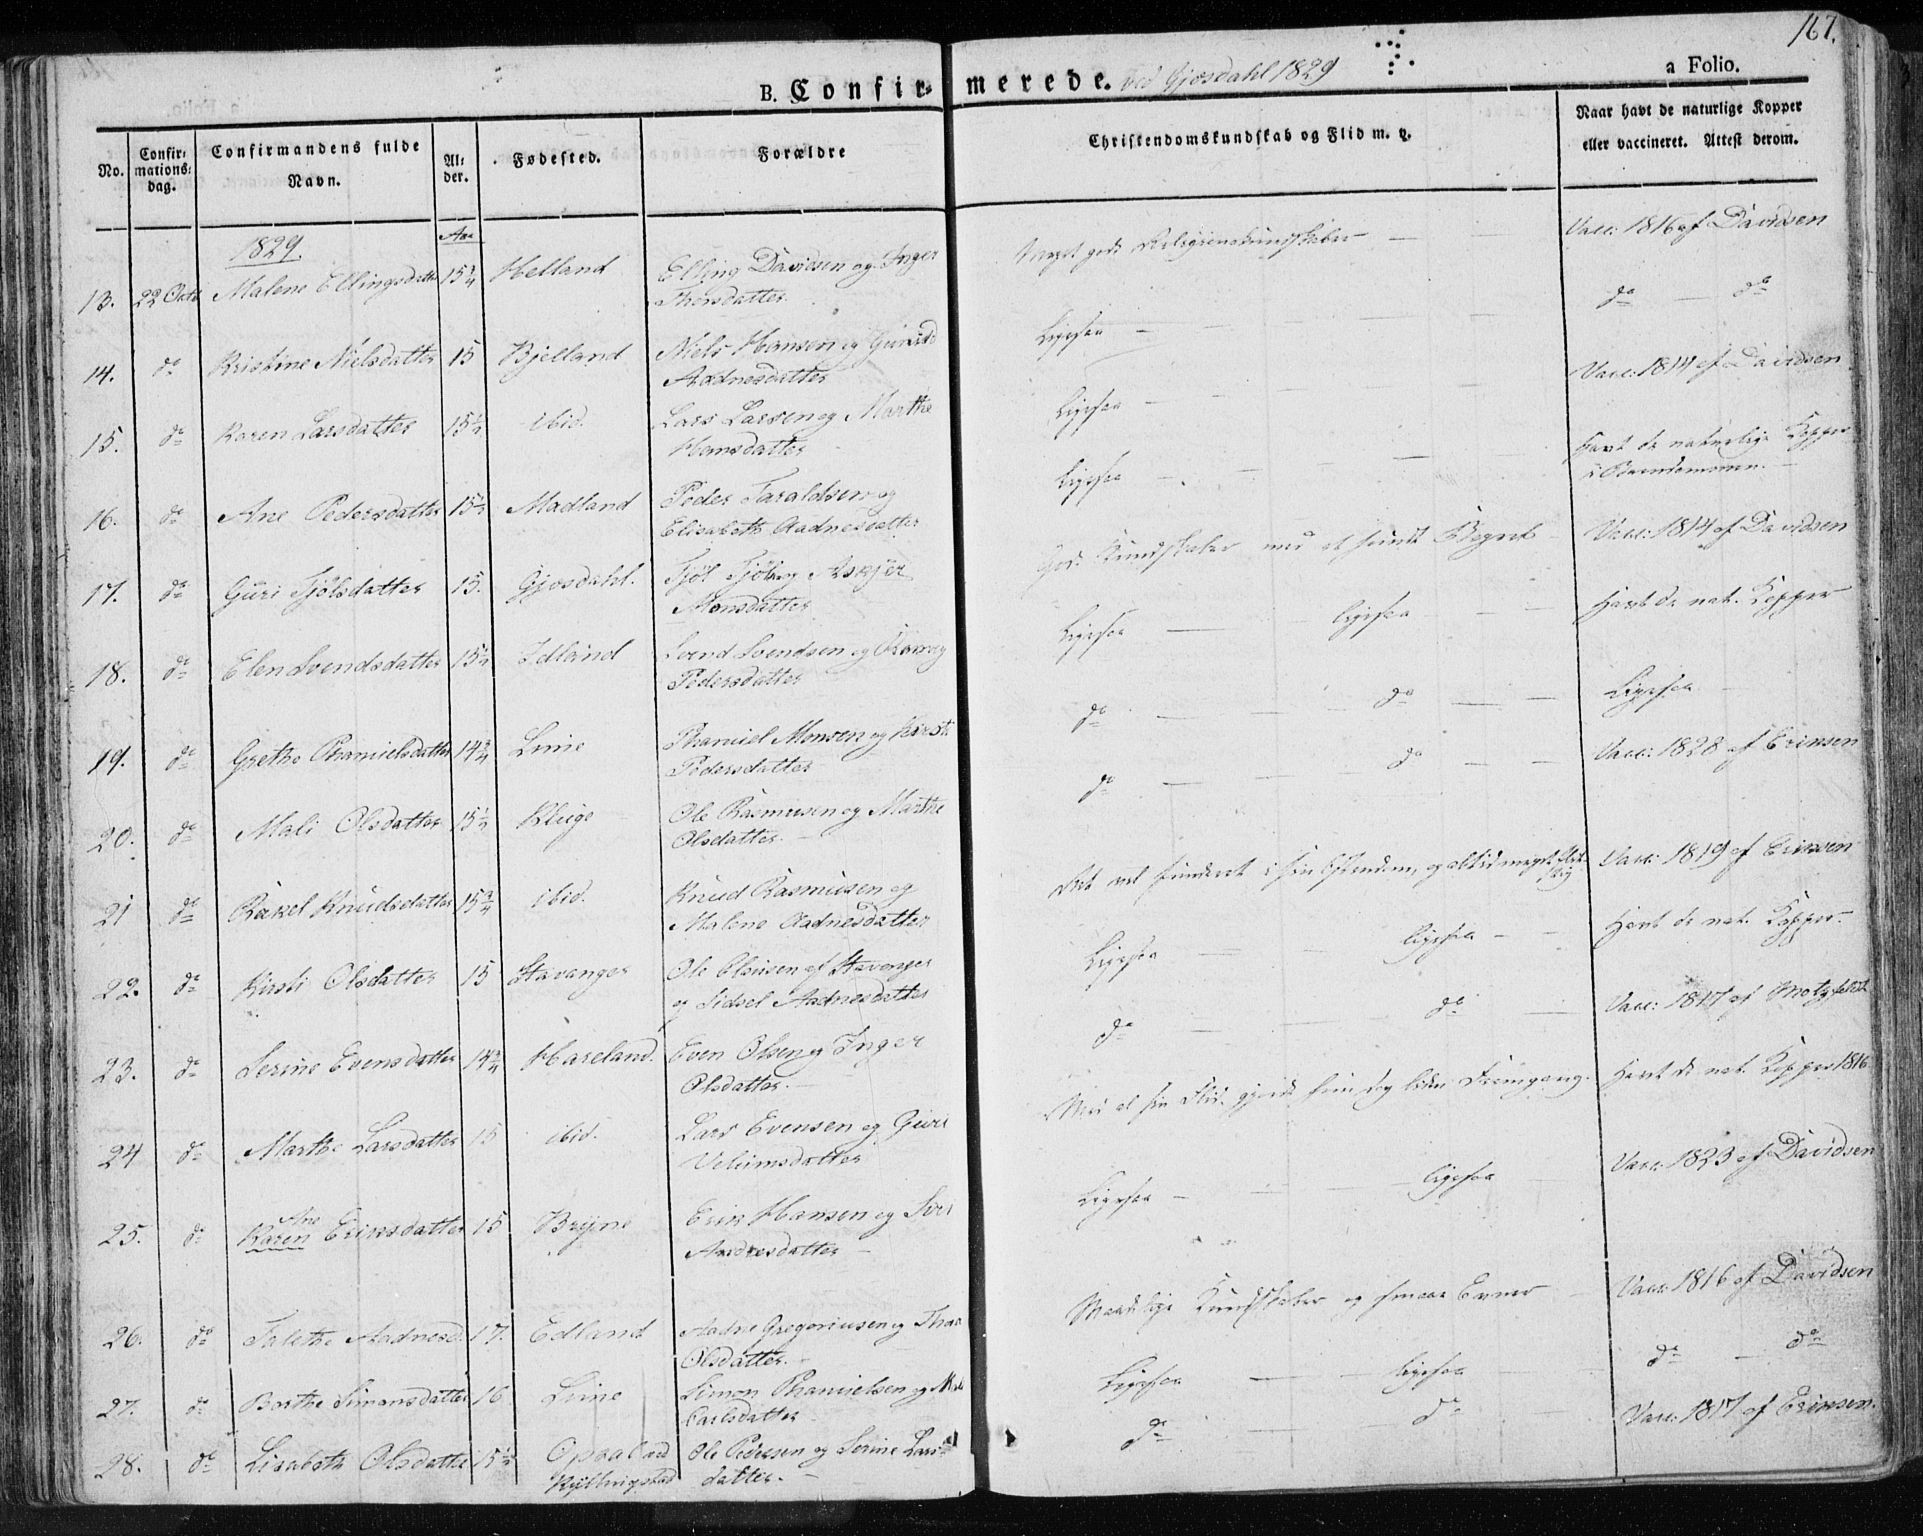 167.
B. Confirmerede. ved Gjesdahl 1829
a Folio.
No.
Confir-
mations-
dag.
Confirmandens fulde
Navn.
Al-
der.
Fødested.
Forældre
Christendomskundskab og Flid m. v.
Naar havt de naturlige Kopper
eller vaccineret. Attest derom.
1829.
Aar
13. 22 Octb Malene Ellingsdatter 15¼ Helland Elling Davidsen og Inger
Thorsdatter.
Meget gode Religionskundskaber — — Vacc: 1816 af Davidsen
14. do Kristine Nielsdatter 15 Bjelland Niels Hansen og Gunild
Aadnesdatter
Ligesaa — do — do
15. do Karen Larsdatter 15½ ibid. Lars Larsen og Marthe
Hansdatter
Ligesaa — Vacc: 1814 af Davidsen
16. do Ane Pedersdatter 15½ Madland Peder Taraldsen og
Elisabeth Aadnesdatter
Ligesaa — Havt de naturlige Kopper
i Barndommen. —
17. do Guri Tjølsdatter 15. Gjesdahl. Tjøl Tjøls og Askjer
Monsdatter
God Kundskaber med et sundt Begreb — Vacc: 1814 af Davidsen
18. do Elen Svendsdatter 15½ Idland Svend Svendsen og
Pedersdatter
Ligesaa — ligesaa — Havt de nat. Kopper
19. do Grethe Thanielsdatter 14¾ Lime Thaniel Monsen og Kirsti
Pedersdatter
do — do — Ligesaa
20. do Mali Olsdatter 15½ Kluge Ole Rasmusen og Marthe
Olsdatter. —
do — do — Vacc: 1828 af Erinsen
21 do Rakel Knudsdatter 15¾ ibid. Knud Rasmusen og
Malene Aadnesdatter
Ret vel funderet i sin Christendom, og altid meget flit-
tig
Vacc: 1819 af Erinsen
22. do Kirsti Olsdatter 15 Stavanger Ole Olsen af Stavanger
og Sidsel Aadnesdatter
Ligesaa — ligesaa — Havt de nat. Kopper. —
23. do Serine Evensdatter 14¾ Haveland. Even Olsen og Inger
Olsdatter. —
do — do — Vacc: 1817 af Motzfeldt
24 do Marthe Larsdatter 15 ibid. Lars Evensen og Guri
Velumsdatter
Med al sin Flid gjorde hun dog liden Fremgang. Havt de nat. Kopper 1816
25. do Ane
Karen Eriksdatter 15 Bryne Erik Hansen og Siri
Aadnesdatter —
Ligesaa — ligesaa Vacc: 1823 af Davidsen
26. do Talethe Aadnesd. 17. Edland Aadne Gregoriusen og
Olsdatter. —
Maadelige Kundskaber og smaae Evner — Vacc: 1816 af Davidsen
27. do Berthe Simonsdatter 16 Lime Simon Thanielsen og
Carlsdatter
Ligesaa — ligesaa — do — do
28. do Lisabeth Olsdatter 15½ Opsal ved
Kyllingstad
Ole Pedersen og Serine Lars-
datter. —
do — do — Vacc: 1817 af Erinsen.